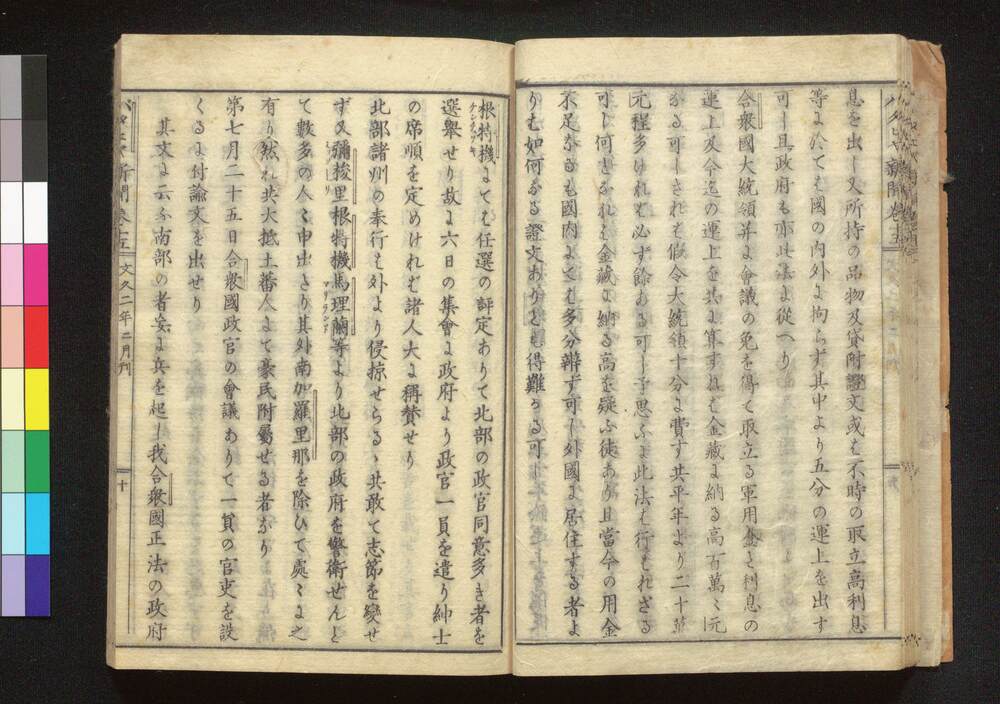 息を出し又所持の品物及貸附證文或は不時の取立高利息
等に於ても國の内外に拘らず其中より五分の運上を出す
可し且政府も亦此法に從へり
合衆國大統領并に會議の免を得て取立る軍用金と利息の
運上又今迄の運上を共に算すれば金藏に納る高百萬元
なる可しされども假令大統領十分に費す共平年より二十萬
元程多けれども必ず餘ある可し予思ふに此法は行もれざる
可し何となれば金藏に納る高を疑ふ徒あり且當今の用金
不足なるも國内よても多分辨ず可し外國に居住する者よ
りも如何なる證文ありとも得難かる可し
根特機にても任選の評定ありて北部の政官同意多き者を
ケンタッキ
選擧せり故に六日の集會に政府より政官一員を遣り紳士
の席順を定めければ諸人大に稱賛せり
北部諸州の奉行も外より侵掠せらるゝ共敢て志節を變せ
ず又彌梭里根特機馬理蘭等より北部の政府を警衛せんと
ミシュリ
マリランド
て數多の人々申出たり其外南加羅里那を除ひて處々に之
有り然れ共大抵土蕃人にて豪民附屬せる者なり
第七月二十五日合衆國政官の會議ありて一員の官吏を設
くるに付論文を出せり
其文に云ふ南部の者妄に兵を起し我合衆國正法の政府
バタビヤ新聞 卷十五 文久二年二月刊 十